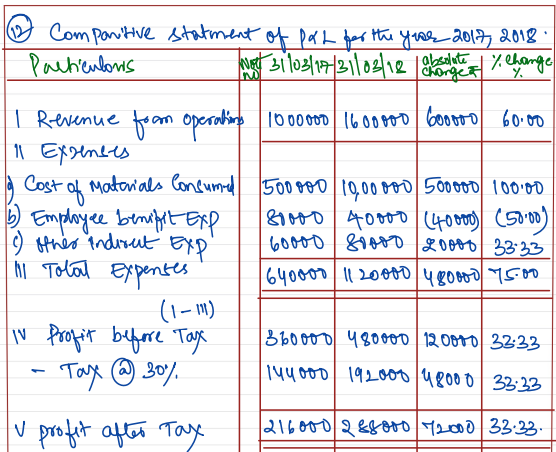 (12) Comparitive statement of P&L for the year 2017, 2018.
Particulars Not no 31/03/17 31/03/18 absolute change ₹ % change %
I Revenue from operations 1000000 1600000 600000 60.00
II Expenses
a) Cost of Materials Consumed 500000 10,00000 500000 100.00
b) Employee benifit Exp 80000 40000 (40000) (50.00)
c) Other Indirect Exp 60000 80000 20000 33.33
III Total Expenses 640000 1120000 480000 75.00
(I-III)
IV Profit before Tax 360000 480000 120000 33.33
- Tax @ 30% 144000 192000 48000 33.33
V profit after Tax 216000 288000 72000 33.33.